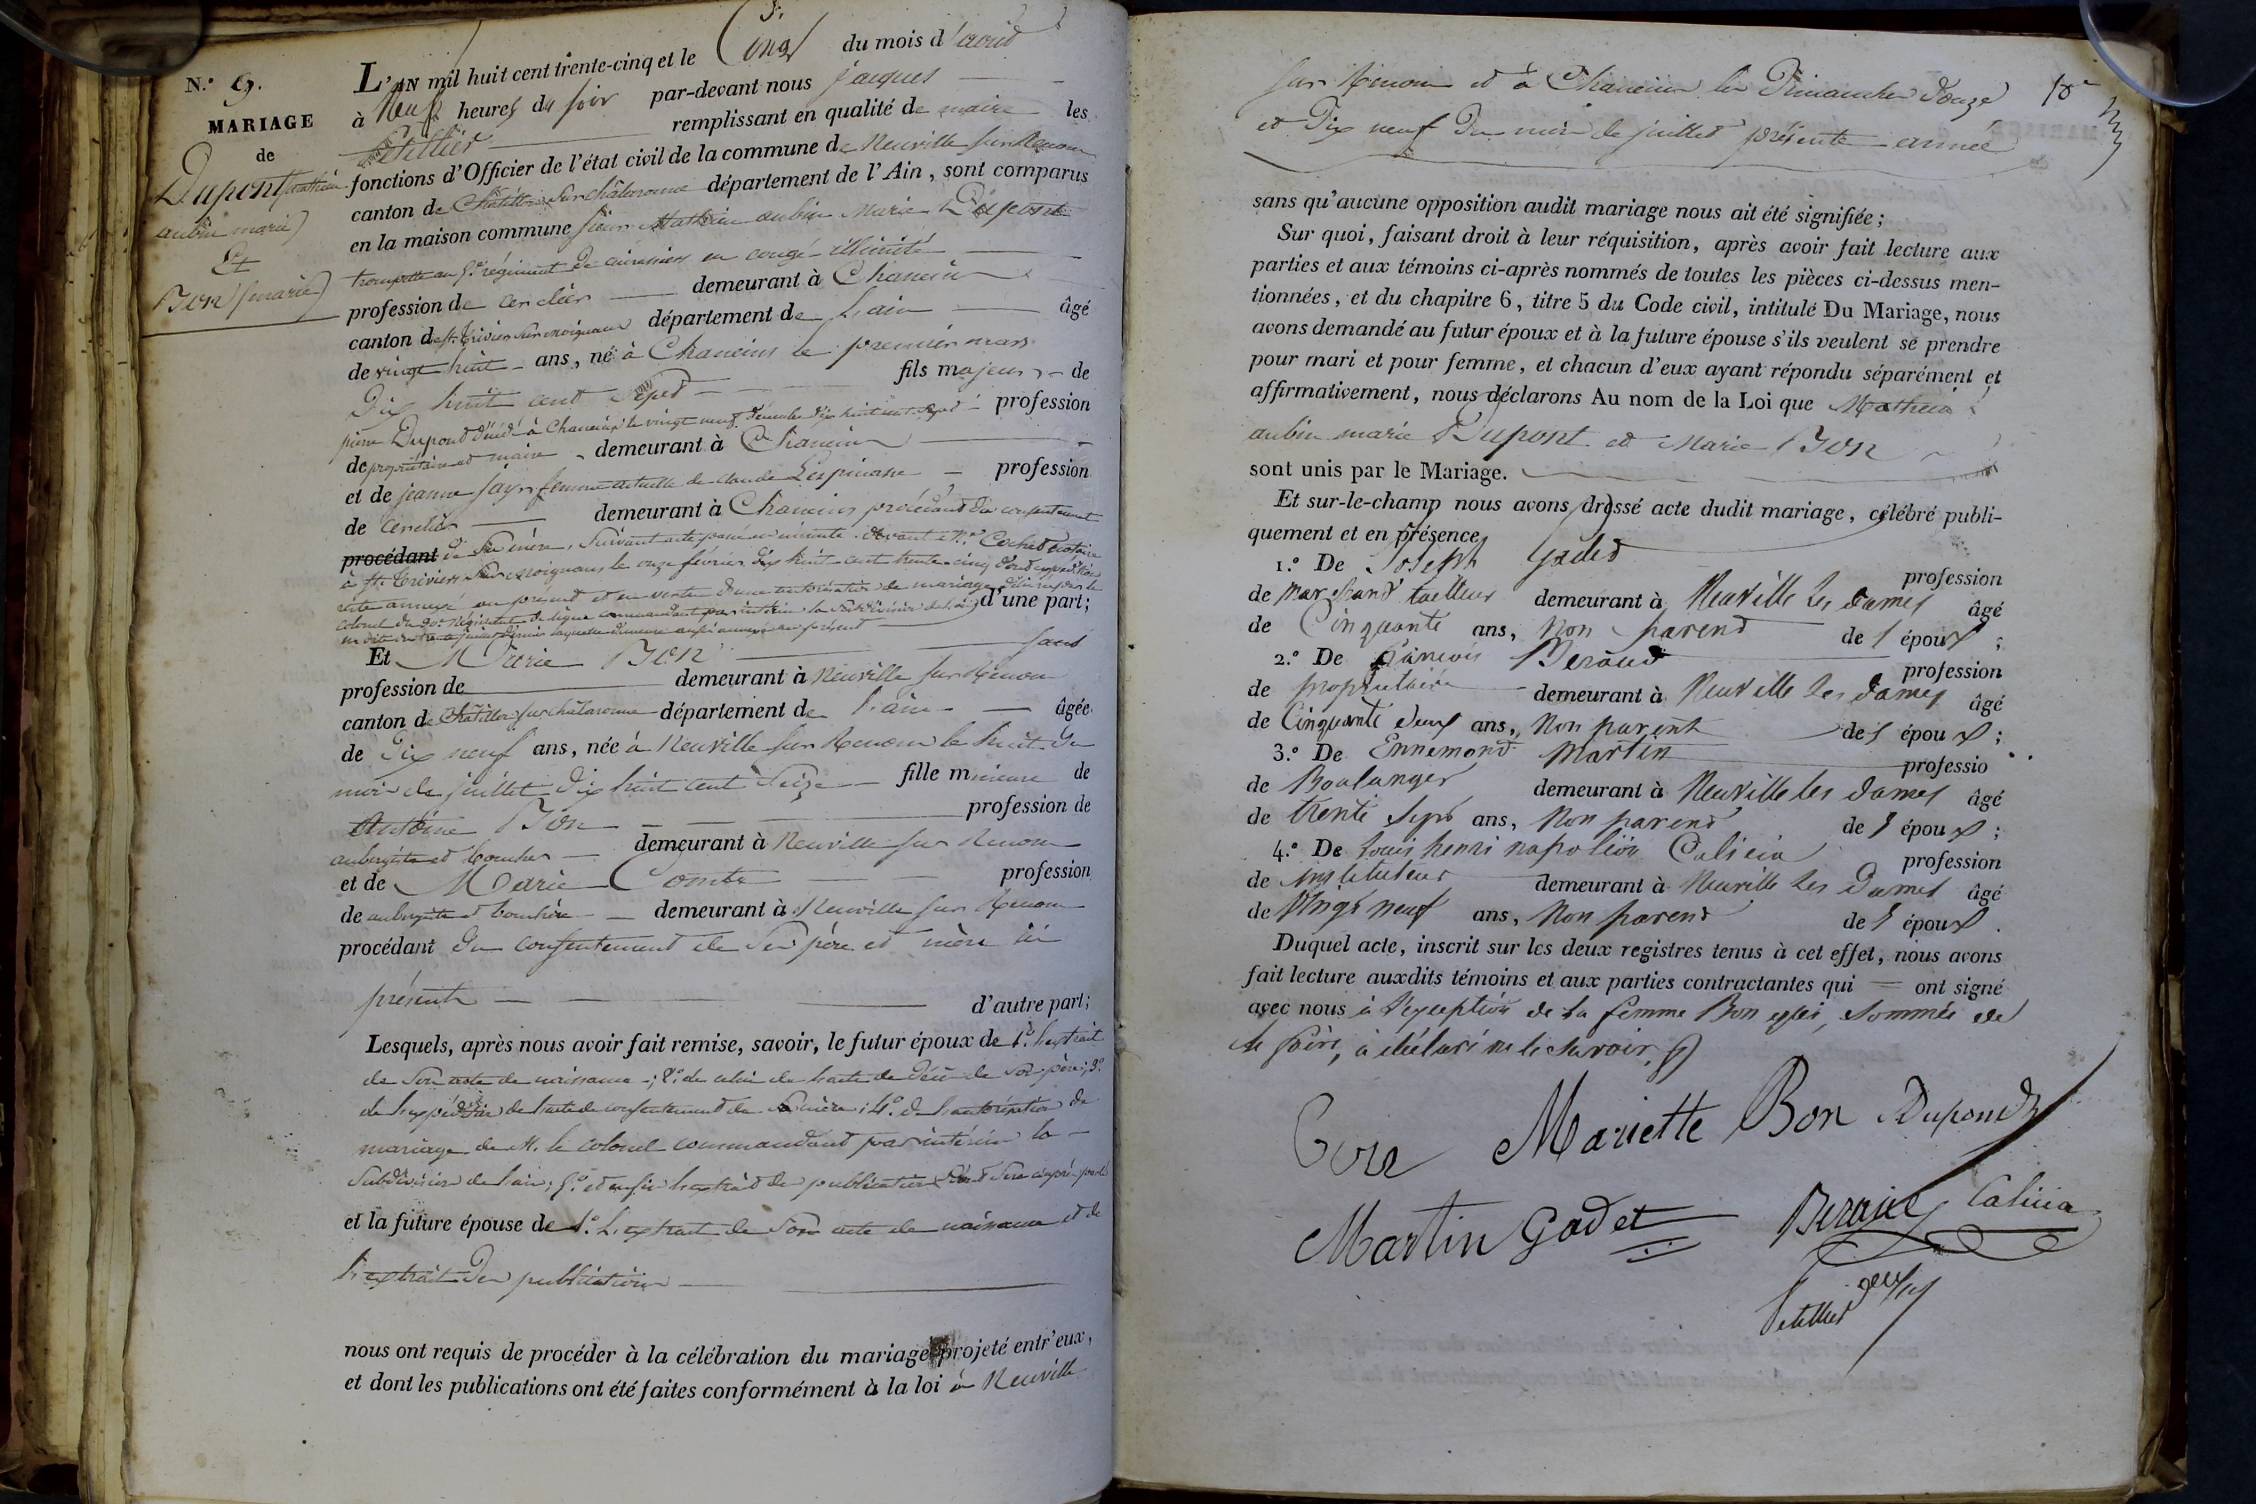 N.º 9.
MARIAGE
de
Dupont (mathieu
aubin marie)
Et
Bon (marie)
L'AN mil huit cent trente-cinq et le Cinq du mois d'août
à Neuf heures du soir par-devant nous jacques
Petellier remplissant en qualité de maire les
fonctions d'Officier de l'état civil de la commune de Neuville sur Renom
canton de Châtillon sur châlaronne département de l'Ain, sont comparus
en la maison commune sieur Mathieu aubin Marie Dupont
trompette au 5.e régiment de cuirassiers en congé illimité
profession de cerclier demeurant à Chaneins
canton de St. Trivier sur moignans département de l'ain âgé
de vingt huit ans, né à Chaneins le premier mars
dix huit cent sept fils majeur de
pierre Dupont décédé à Chaneins le vingt neuf dix huit cent profession
de propriétaire et maire demeurant à Chaneins
et de jeanne femme actuelle de claude Lespinasse profession
de cerclier demeurant à Chaneins procédant du consentement
procédant de sa mère, suivant acte passé en minute devant M.e Cochet notaire
à St. Trivier sur moignans le onze février dix huit cent trente cinq dont expédition
reste annexé au présent et en vertu d'une autorisation de mariage délivrée par le
colonel du régiment de ligne commandant par intérim la subdivision de l'ain d'une part;
demeure aussi annexée au présent
Et Marie Bon sans
profession de demeurant à Neuville sur Renom
canton de Châtillon sur châlaronne département de l'ain âgée
de dix neuf ans, née à Neuville sur Renom le huit du
mois de juillet dix huit cent seize fille mineure de
Antoine Bon profession de
aubergiste et boucher demeurant à Neuville sur Renom
et de Marie Comte profession
de aubergiste et bouchère demeurant à Neuville sur Renom
procédant du consentement de ses père et mère ici
présents d'autre part;
Lesquels, après nous avoir fait remise, savoir, le futur époux de 1.º l'extrait
de son acte de naissance; 2.º de celui de l'acte de décès de son père; 3.º
de l'expédition de l'acte de consentement de sa mère; 4.º de l'autorisation de
mariage de M. le colonel commandant par intérim la
subdivision de l'ain; 5.º et enfin l'extrait des publications dont sera ci après parlé
et la future épouse de 1.º L'extrait de son acte de naissance et de
l'extrait des publications
nous ont requis de procéder à la célébration du mariage projeté entr'eux,
et dont les publications ont été faites conformément à la loi à Neuville
sur Renom et à Chaneins les Dimanches Douze
et Dix neuf du mois de juillet présente année
sans qu'aucune opposition audit mariage nous ait été signifiée;
Sur quoi, faisant droit à leur réquisition, après avoir fait lecture aux
parties et aux témoins ci-après nommés de toutes les pièces ci-dessus men-
tionnées, et du chapitre 6, titre 5 du Code civil, intitulé Du Mariage, nous
avons demandé au futur époux et à la future épouse s'ils veulent se prendre
pour mari et pour femme, et chacun d'eux ayant répondu séparément et
affirmativement, nous déclarons Au nom de la Loi que Mathieu
aubin marie Dupont et Marie Bon
sont unis par le Mariage.
Et sur-le-champ nous avons dressé acte dudit mariage, célébré publi-
quement et en présence
1.º De Joseph Gadet profession
de marchand tailleur demeurant à Neuville les dames âgé
de Cinquante ans, non parent de s époux;
2.º De françois Beraud profession
de propriétaire demeurant à Neuville les dames âgé
de Cinquante deux ans, non parent de s époux;
3.º De Ennemond Martin professio
de Boulanger demeurant à Neuville les dames âgé
de trente sept ans, non parent de s époux;
4.º De Louis henri napoléon Calicia profession
de instituteur demeurant à Neuville les Dames âgé
de Vingt neuf ans, Non parent de s époux.
Duquel acte, inscrit sur les deux registres tenus à cet effet, nous avons
fait lecture auxdits témoins et aux parties contractantes qui ont signé
avec nous à l'exception de la femme Bon qui, sommée de
le faire, a déclaré ne le savoir.
Bon Mariette Bon Dupond
Martin Gadet Beraud Calicia
Petellier